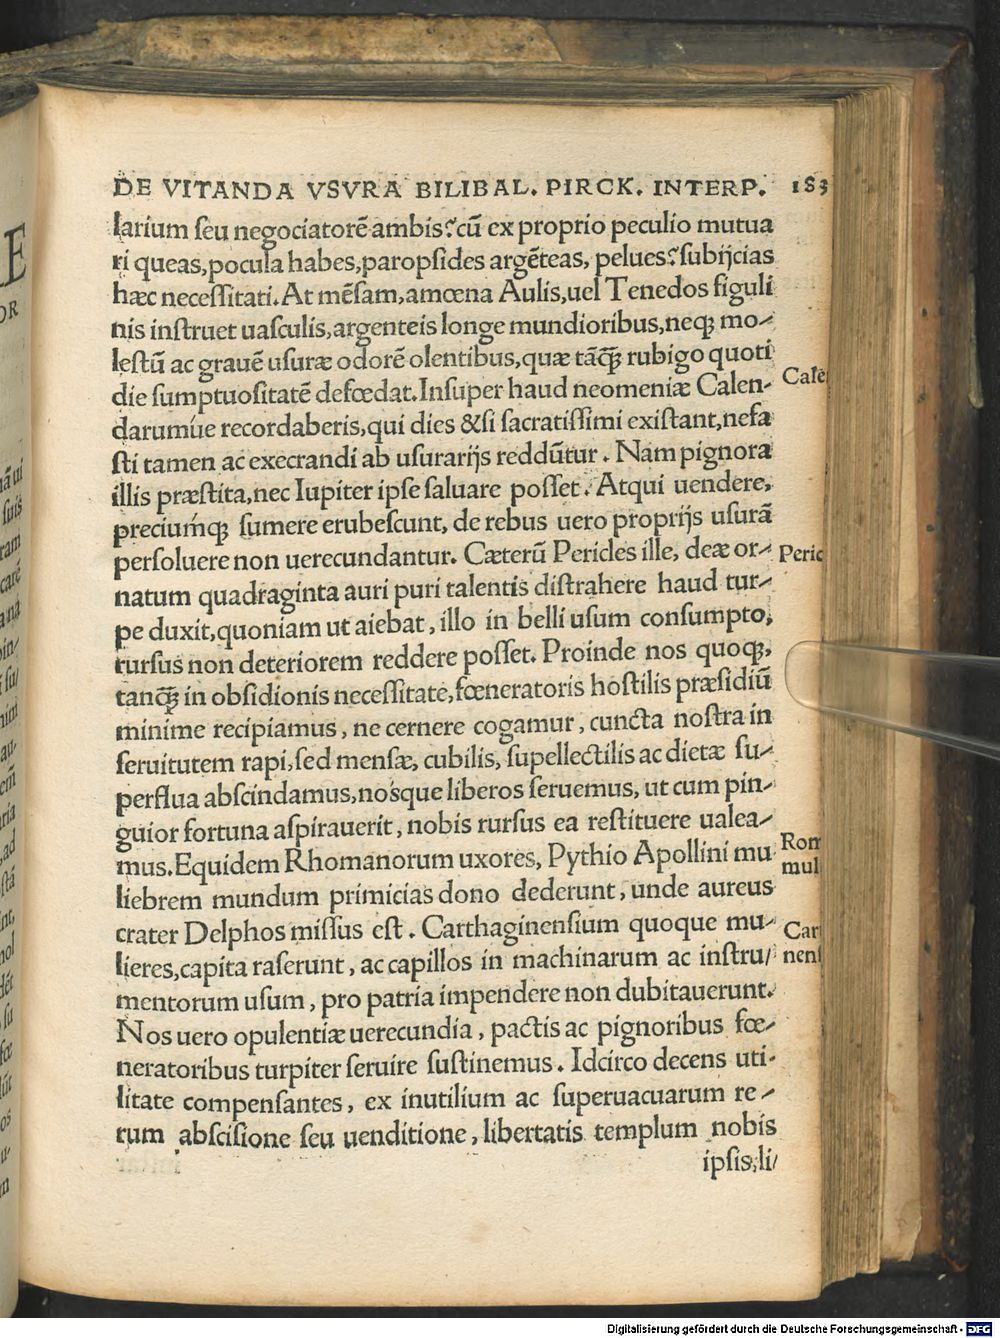 DE VITANDA VSVRA BILIBAL. PIRCK. INTERP. 183
larium seu negociatorē ambis? cū ex proprio peculio mutua
ri queas, pocula habes, paropsides argēteas, pelues? subijcias
hæc necessitati. At mēsam, amœna Aulis, uel Tenedos figuli
nis instruet uasculis, argenteis longe mundioribus, neqꝫ mo-
lestū ac grauē usuræ odorē olentibus, quæ tāqꝫ rubigo quoti
die sumptuositatē defœdat. Insuper haud neomeniæ Calen-
Calē
darumúe recordaberis, qui dies & si sacratissimi existant, nefa
sti tamen ac execrandi ab usurarijs reddūtur. Nam pignora
illis præstita, nec Iupiter ipse saluare posset. Atqui uendere,
preciumqꝫ́ sumere erubescunt, de rebus uero proprijs usurā
persoluere non uerecundantur. Cæterū Pericles ille, deæ or-
Peric
natum quadraginta auri puri talentis distrahere haud tur-
pe duxit, quoniam ut aiebat, illo in belli usum consumpto,
rursus non deteriorem reddere posset. Proinde nos quoqꝫ,
tanqꝫ̄ in obsidionis necessitate, fœneratoris hostilis præsidiū
minime recipiamus, ne cernere cogamur, cuncta nostra in
seruitutem rapi, sed mensæ, cubilis, supellectilis ac dietæ su-
perflua abscindamus, nósque liberos seruemus, ut cum pin-
guior fortuna aspirauerit, nobis rursus ea restituere ualea-
mus. Equidem Rhomanorum uxores, Pythio Apollini mu
Rom
mul
liebrem mundum primicias dono dederunt, unde aureus
crater Delphos missus est. Carthaginensium quoque mu-
Cart
lieres, capita raserunt, ac capillos in machinarum ac instru-
nens
mentorum usum, pro patria impendere non dubitauerunt.
Nos uero opulentiæ uerecundia, pactis ac pignoribus fœ-
neratoribus turpiter seruire sustinemus. Idcirco decens uti-
litate compensantes, ex inutilium ac superuacuarum re-
rum abscisione seu uenditione, libertatis templum nobis
ipsis, li-
Digitalisierung gefördert durch die Deutsche Forschungsgemeinschaft - DFG